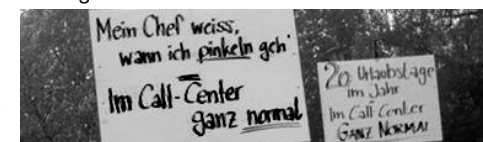 Mein Chef weiss,
wann ich pinkeln geh'
Im Call-Center
ganz normal
20 Urlaubstage
im Jahr
Im Call Center
GANZ NORMAL